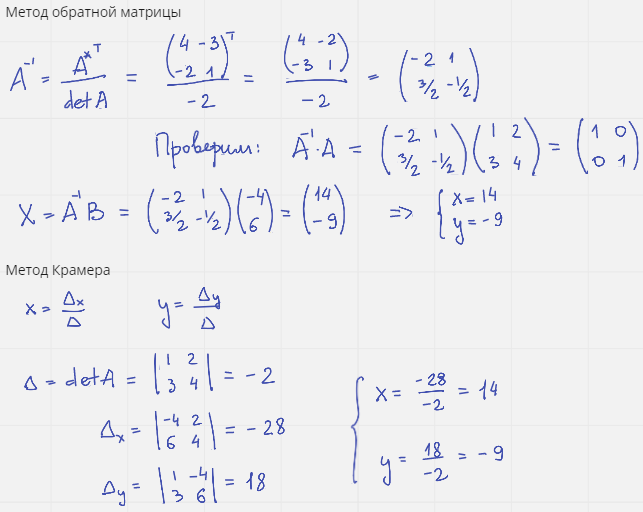 Метод обратной матрицы
A⁻¹ = A*ᵀ / det A = (4 -3; -2 1)ᵀ / -2 = (4 -2; -3 1) / -2 = (-2 1; 3/2 -1/2)
Проверим: A⁻¹·A = (-2 1; 3/2 -1/2)(1 2; 3 4) = (1 0; 0 1)
X = A⁻¹B = (-2 1; 3/2 -1/2)(-4; 6) = (14; -9) => { x = 14; y = -9
Метод Крамера
x = Δx / Δ y = Δy / Δ
Δ = det A = |1 2; 3 4| = -2
Δx = |-4 2; 6 4| = -28
Δy = |1 -4; 3 6| = 18
{ x = -28 / -2 = 14
y = 18 / -2 = -9